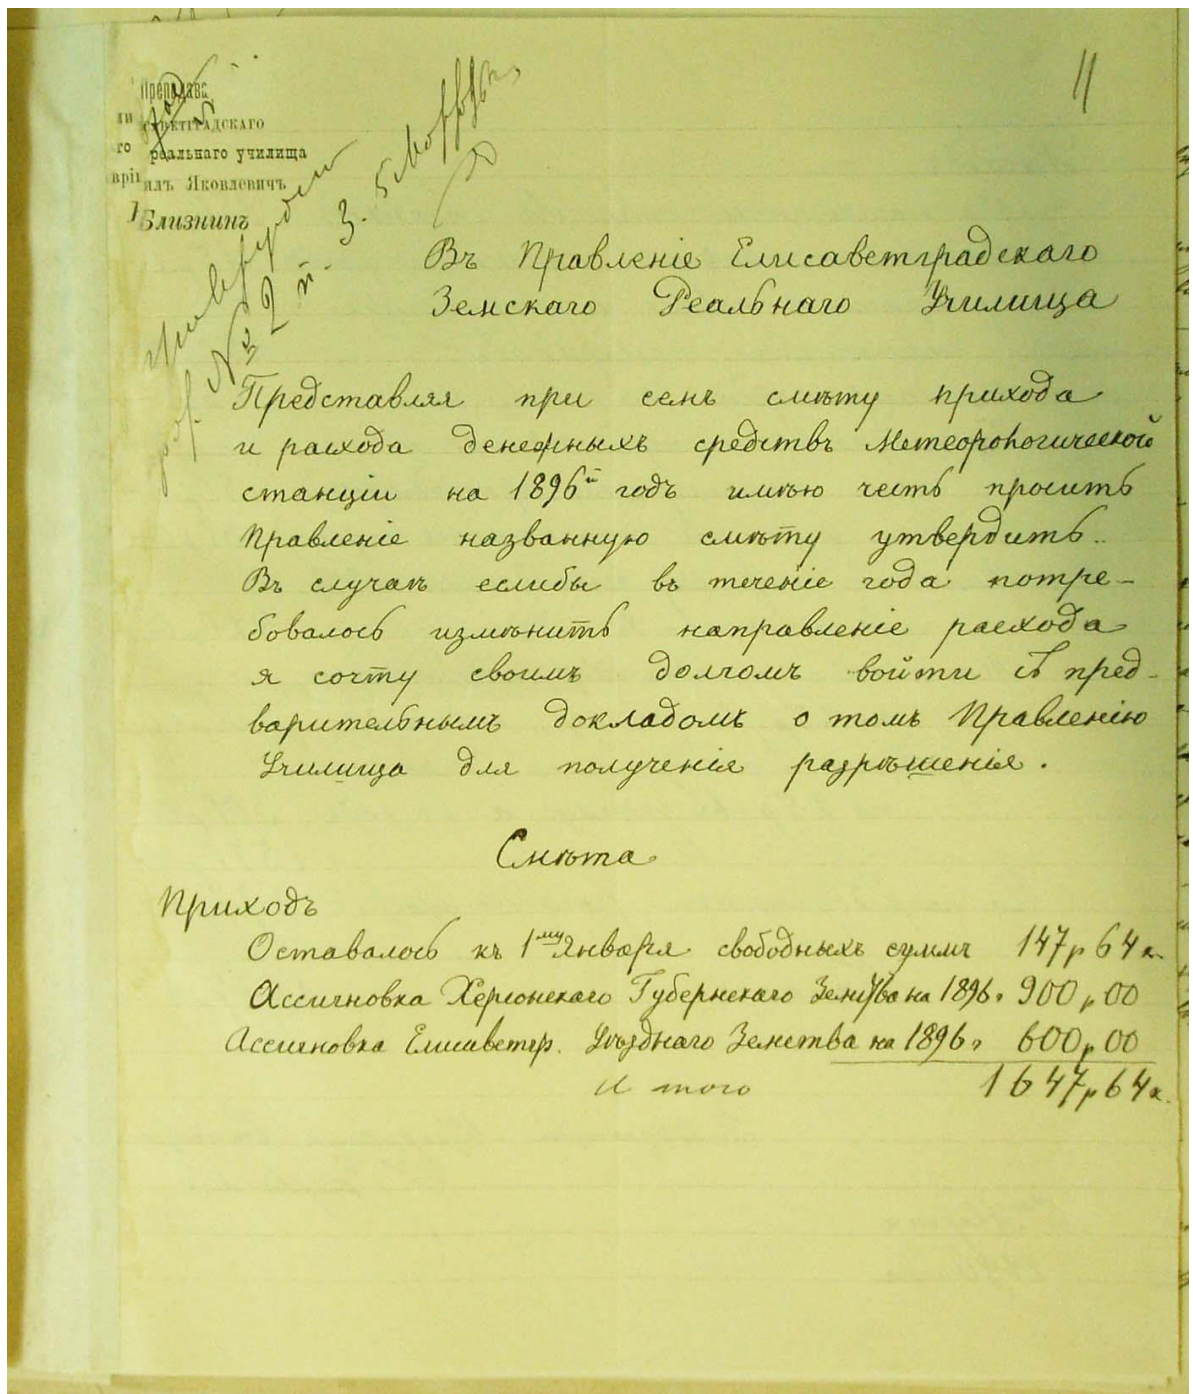 11
Препода
ли саветградскаго
го реальнаго училища
врiи илъ Яковлевичъ
Близнинъ
№ 2 п. 3.
Въ Правленіе Елисаветградскаго
Земскаго Реальнаго Училища
Представляя при семъ смѣту прихода
и расхода денежныхъ средствъ Метеорологической
станціи на 1896й годъ имѣю честь просить
Правленіе названную смѣту утвердить.
Въ случаѣ еслибы въ теченіе года потре-
бовалось измѣнить направленіе расхода
я сочту своимъ долгомъ войти съ пред-
варительнымъ докладомъ о томъ Правленію
Училища для полученія разрѣшенія.
Смѣта
Приходъ
Оставалось къ 1му Января свободныхъ суммъ 147 р 64 к.
Ассигновка Херсонскаго Губернскаго Земства на 1896 г 900 р 00
Ассигновка Елисаветгр. Уѣзднаго Земства на 1896 г 600 р 00
Итого 1647 р 64 к.